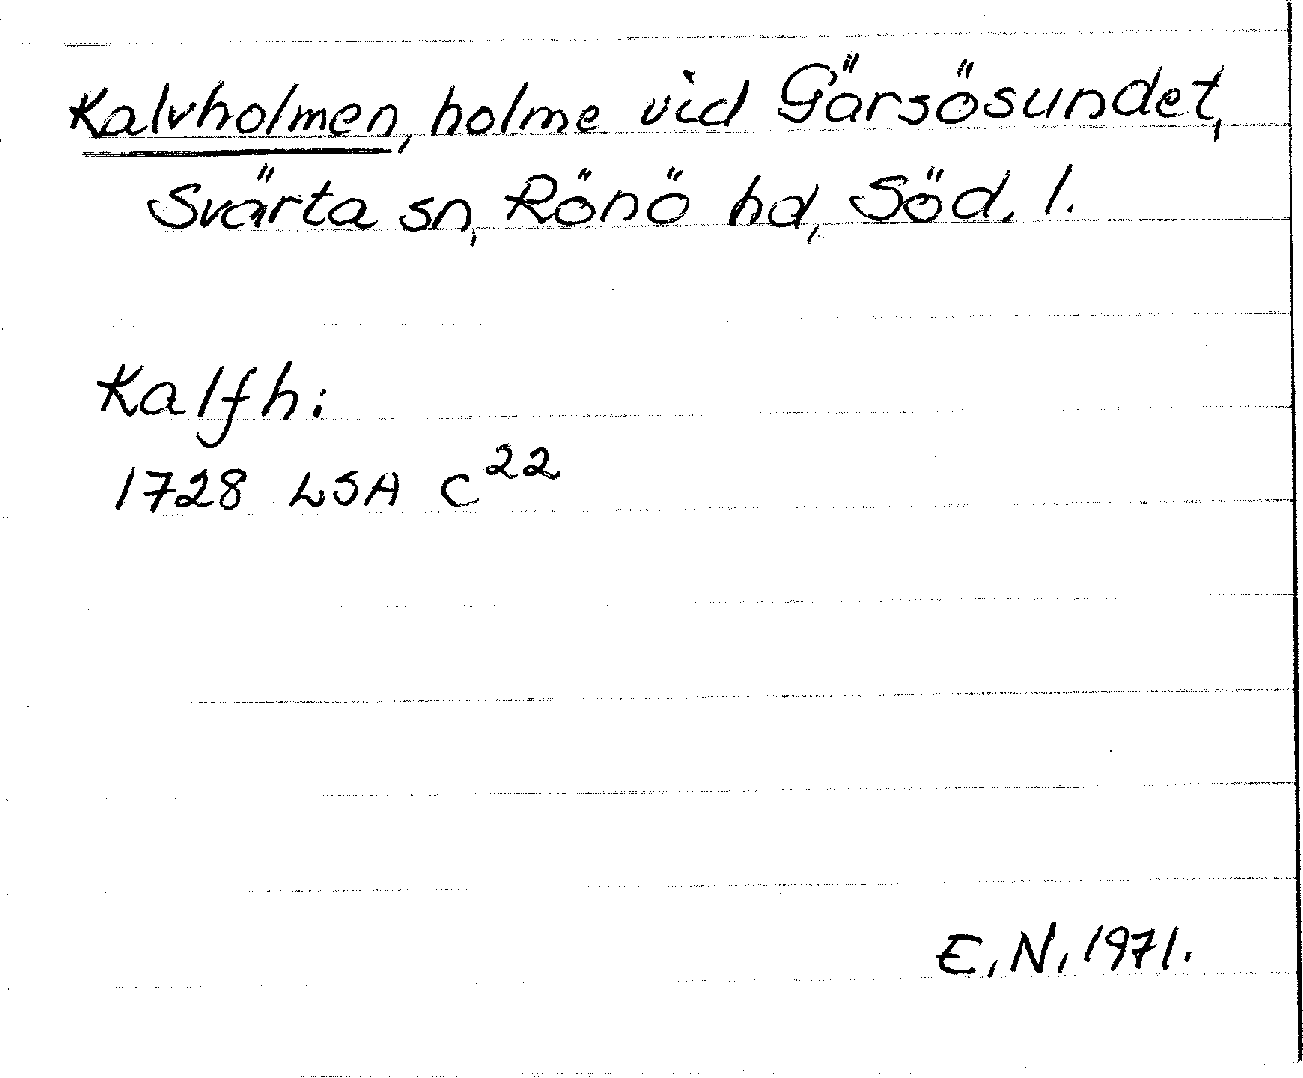 Kalvholmen, holme vid Gärsösundet,
Svärta sn, Rönö hd, Söd. l.
Kalfh:
1728 LSA C²²
E.N. 1971.